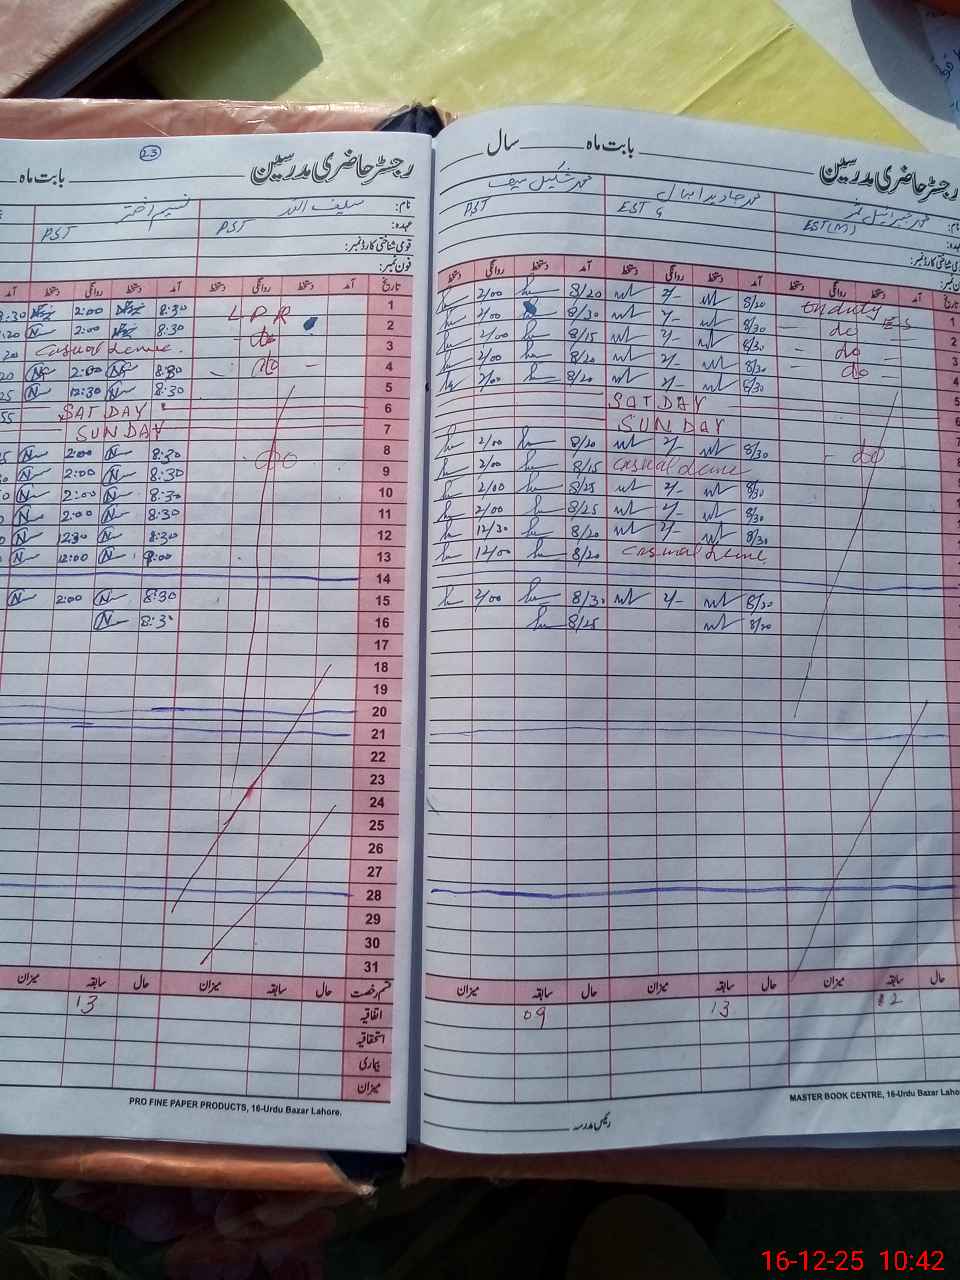 23
رجسٹر حاضری مدرسین بابت ماہ
نام: سیف اللہ نسیم اختر
عہدہ: PST PST
قومی شناختی کارڈ نمبر:
فون نمبر:
تاریخ آمد دستخط روانگی دستخط آمد دستخط روانگی دستخط آمد
1 LPR 8:30 2:00
2 do 8:30 2:00 N
3 Casual leave
4 do 8:30 N 2:00 N
5 8:30 N 12:30 N
6 SATDAY
7 SUNDAY
8 do 8:30 N 2:00 N
9 8:30 N 2:00 N
10 8:30 N 2:00 N
11 8:30 N 2:00 N
12 8:30 N 12:30 N
13 9:00 N 12:00 N
14
15 8:30 N 2:00 N
16 8:30 N
17
18
19
20
21
22
23
24
25
26
27
28
29
30
31
قسم رخصت حال سابقہ میزان حال سابقہ میزان
اتفاقیہ 13
استحقاقیہ
بیماری
میزان
PRO FINE PAPER PRODUCTS, 16-Urdu Bazar Lahore.
رجسٹر حاضری مدرسین بابت ماہ سال
محمد جاوید اقبال محمد شکیل سیف
EST(M) EST G PST
آمد دستخط روانگی دستخط آمد دستخط روانگی دستخط
1 On duty 8/20 2/- 8/20 2/00
2 do 8/30 2/- 8/30 2/00
3 do 8/30 2/- 8/15 2/00
4 do 8/30 2/- 8/20 2/00
8/30 2/- 8/20 2/00
SATDAY
SUNDAY
do 8/30 2/- 8/20 2/00
Casual leave 8/15 2/00
8/30 2/- 8/25 2/00
8/30 2/- 8/25 2/00
8/30 2/- 8/20 12/30
Casual leave 8/20 12/00
8/20 2/- 8/30 2/00
8/20 8/25
حال سابقہ میزان حال سابقہ میزان حال سابقہ میزان
12 13 09
MASTER BOOK CENTRE, 16-Urdu Bazar Laho
رئیس مدرسہ
16-12-25 10:42